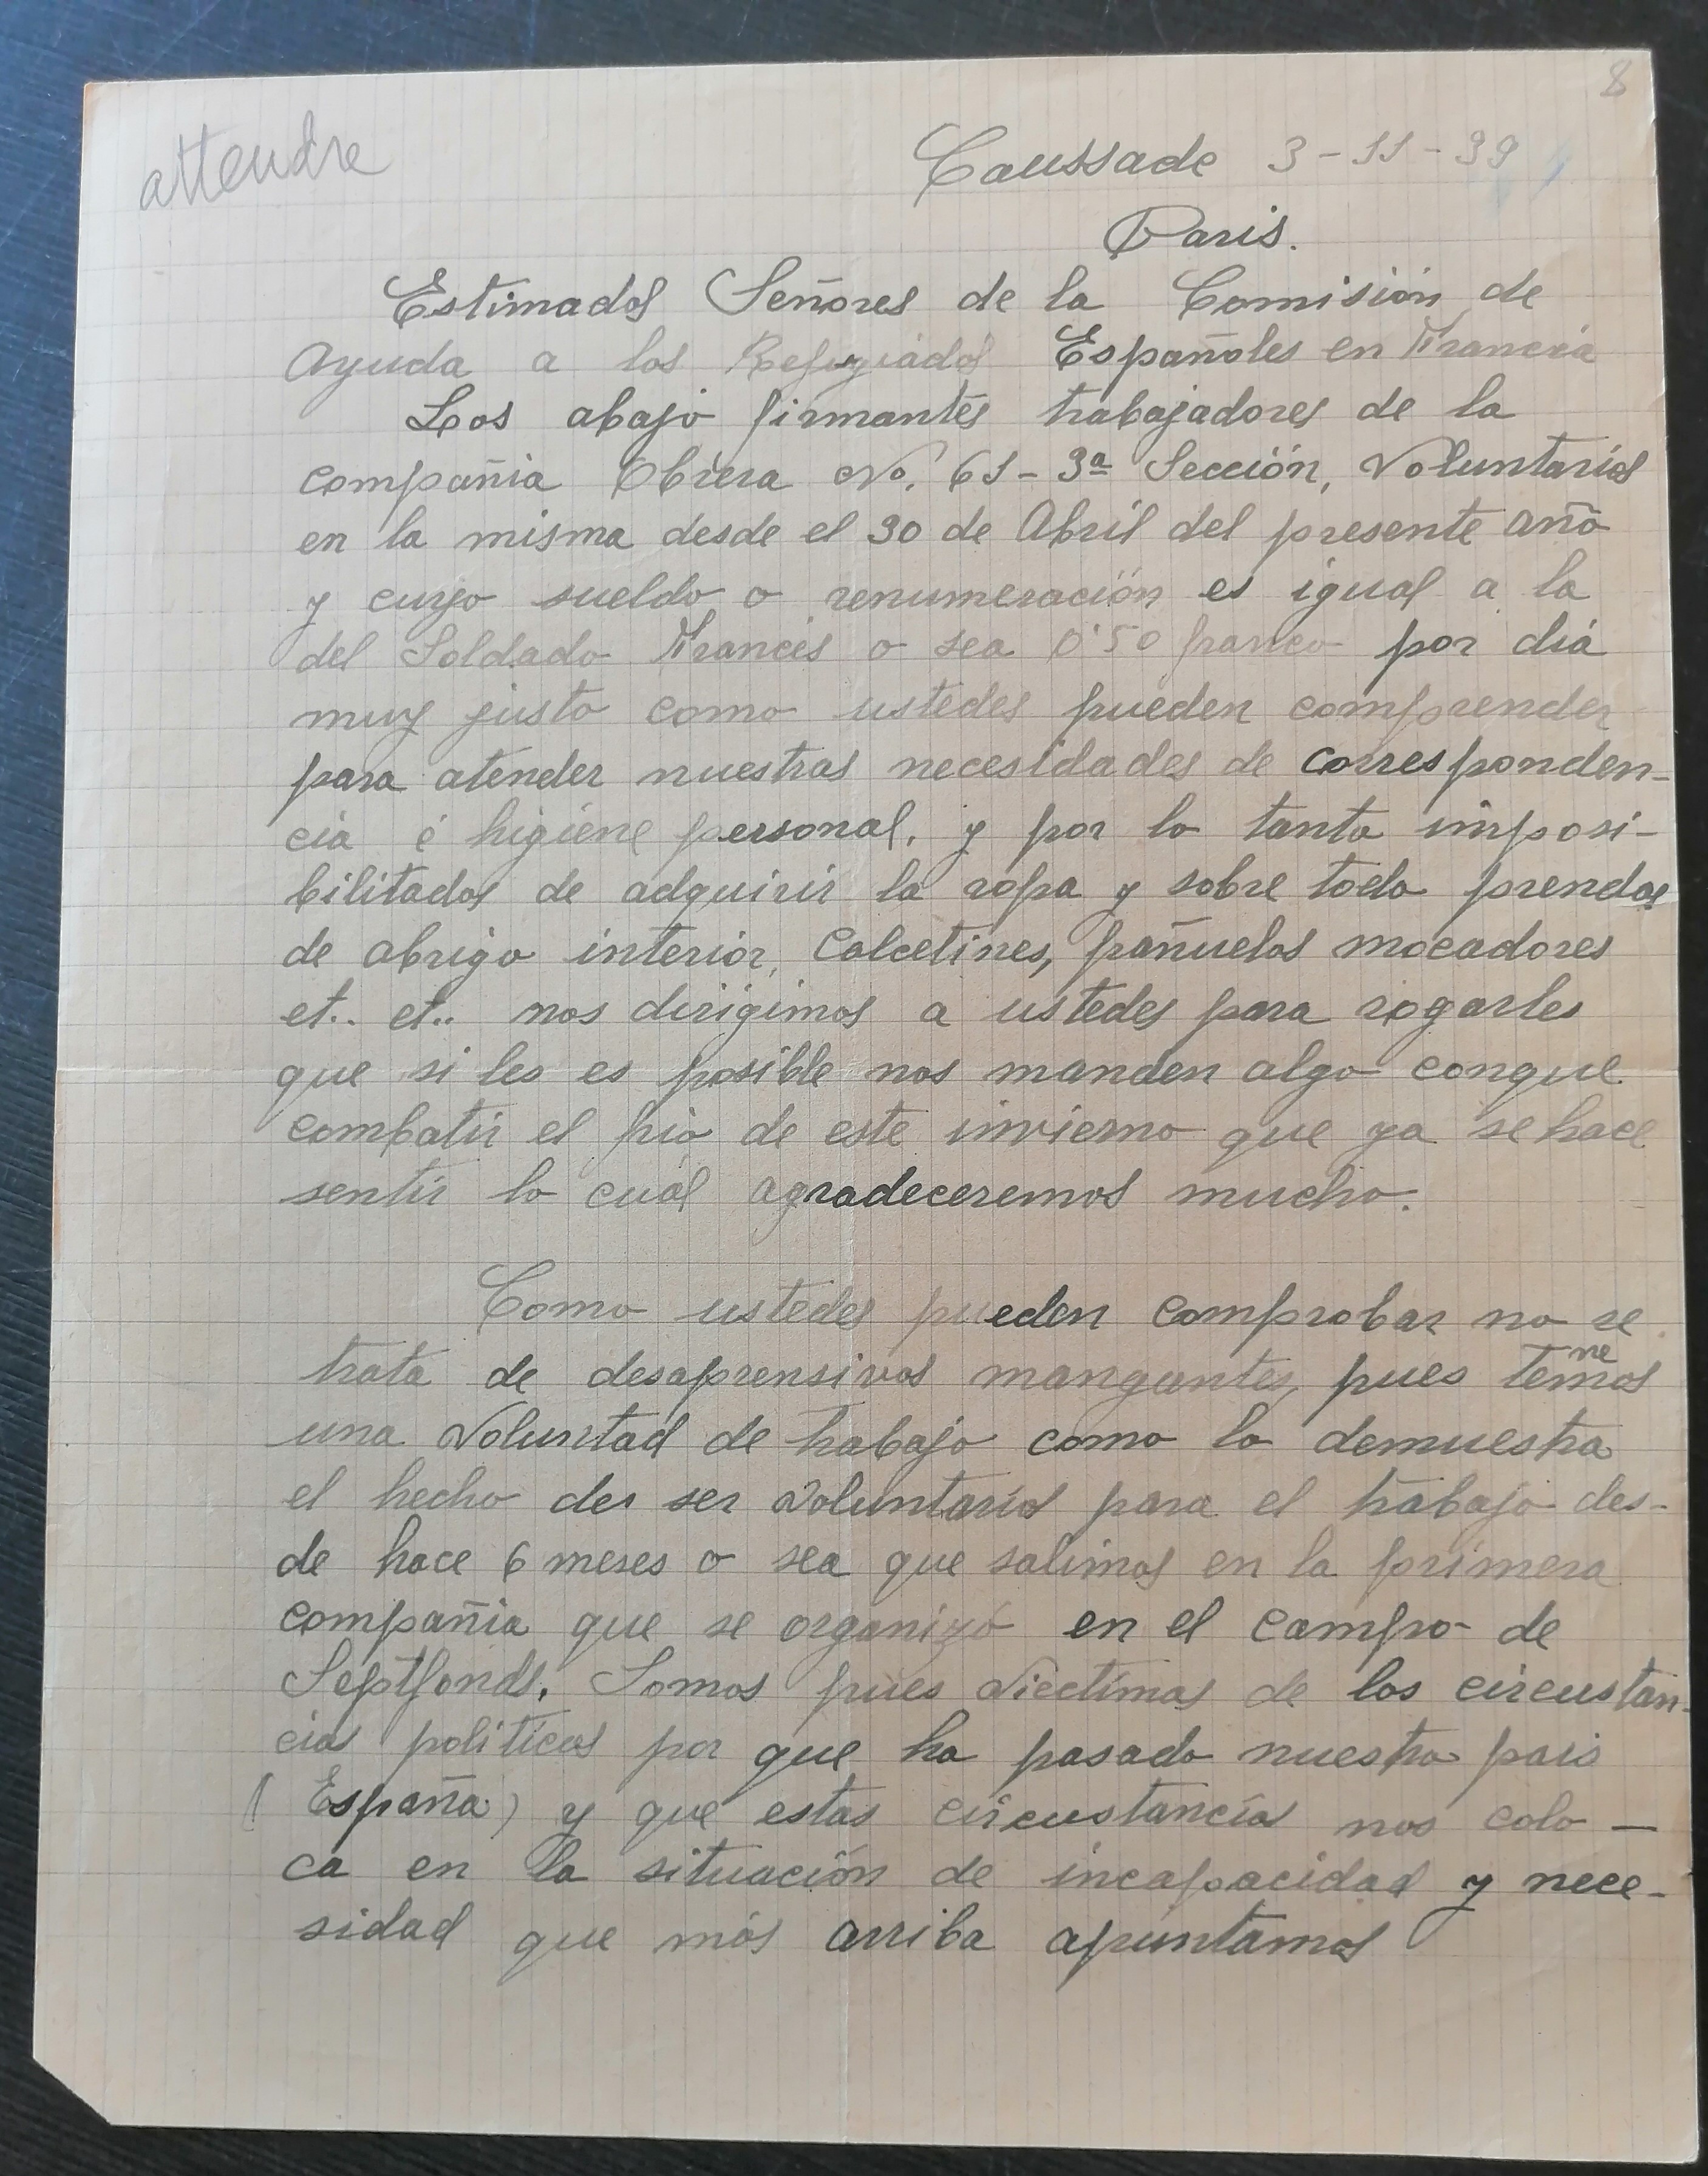 8
attendre
Caussade 3-11-39
Paris.
Estimados Señores de la Comisión de
Ayuda a los Refugiados Españoles en Francia
Los abajo firmantes trabajadores de la
compañia Obrera No. 61-3ª Sección, Voluntarios
en la misma desde el 30 de Abril del presente año
y cuyo sueldo o renumeración es igual a la
del Soldado Francés o sea 0'50 franco por dia
muy justo como ustedes pueden comprender
para atender nuestras necesidades de corresponden-
cia é higiene personal, y por lo tanto imposi-
bilitados de adquirir la ropa y sobre todo prendas
de abrigo interior, Calcetines, pañuelos mocadores
et.. et.. nos dirigimos a ustedes para rogarles
que si les es posible nos manden algo conque
combatir el frio de este invierno que ya se hace
sentir lo cuál agradeceremos mucho.
Como ustedes pueden comprobar no se
trata de desaprensivos mangantes, pues tenemos
una voluntad de trabajo como lo demuestra
el hecho des ser voluntarios para el trabajo des-
de hace 6 meses o sea que salimos en la primera
compañia que se organizó en el campo de
Septfonds. Somos pues victimas de las circustan-
cias politicas por que ha pasado nuestro pais
(España) y que estas circustancias nos colo-
ca en la situación de incapacidad y nece-
sidad que más arriba apuntamos